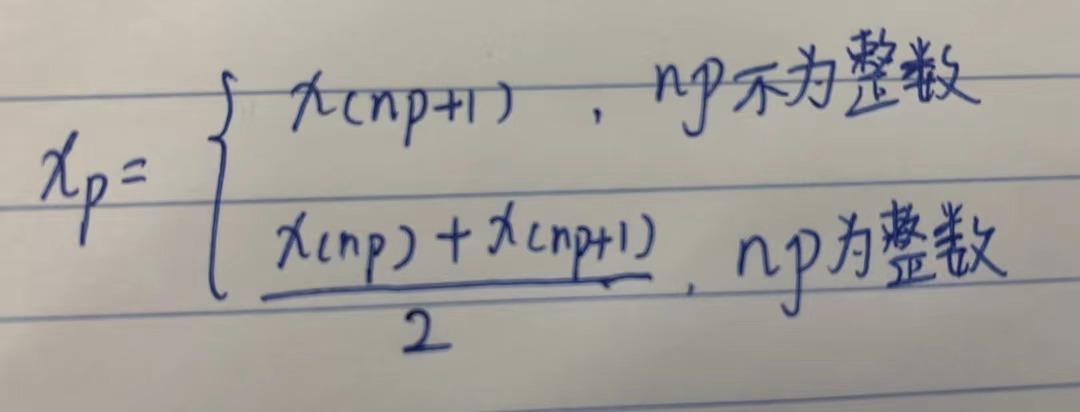 x_p = { x(np+1) , np不为整数
(x(np) + x(np+1)) / 2 , np为整数